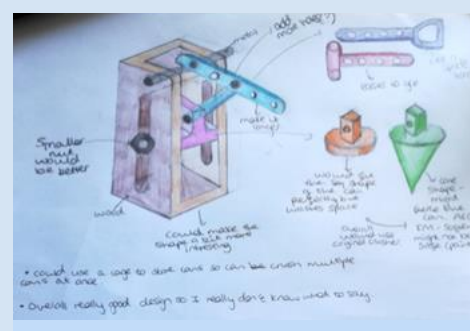 metal
add
more holes(?)
make it
longer
easier to grip
Smaller
nut
would
be better
wood
could make the
shape a bit more
interesting
would
the
shape
of the can
perfectly but
wastes space
overall
would use
original crusher
cone
shape -
might
pierce the
can
might not be
• could use a cage to store cans so can be crush multiple
cans at once
• Overall really good design so I really don't know what to say.